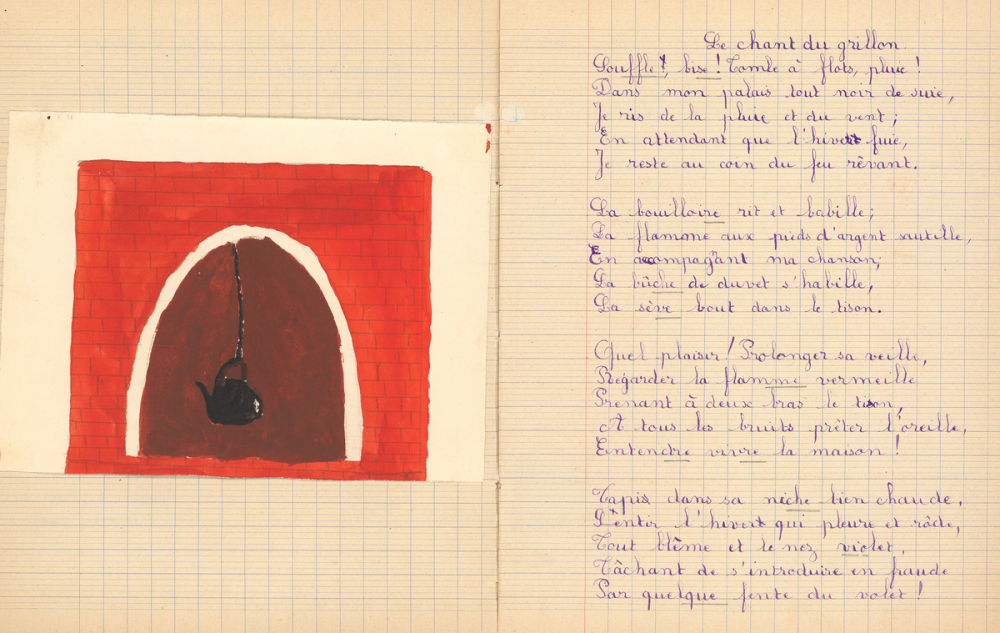 Le chant du grillon
Souffle, bise ! Tombe à flots, pluie !
Dans mon palais tout noir de suie,
Je ris de la pluie et du vent ;
En attendant que l'hiver fuie,
Je reste au coin du feu rêvant.
La bouilloire rit et babille ;
La flamme aux pieds d'argent sautille,
En accompagnant ma chanson ;
La bûche de duvet s'habille,
La sève bout dans le tison.
Quel plaisir ! Prolonger sa veille,
Regarder la flamme vermeille
Prenant à deux bras le tison,
A tous les bruits prêter l'oreille,
Entendre vivre la maison !
Tapis dans sa niche bien chaude,
Sentir l'hiver qui pleure et rôde,
Tout blême et le nez violet,
Tâchant de s'introduire en fraude
Par quelque fente du volet !